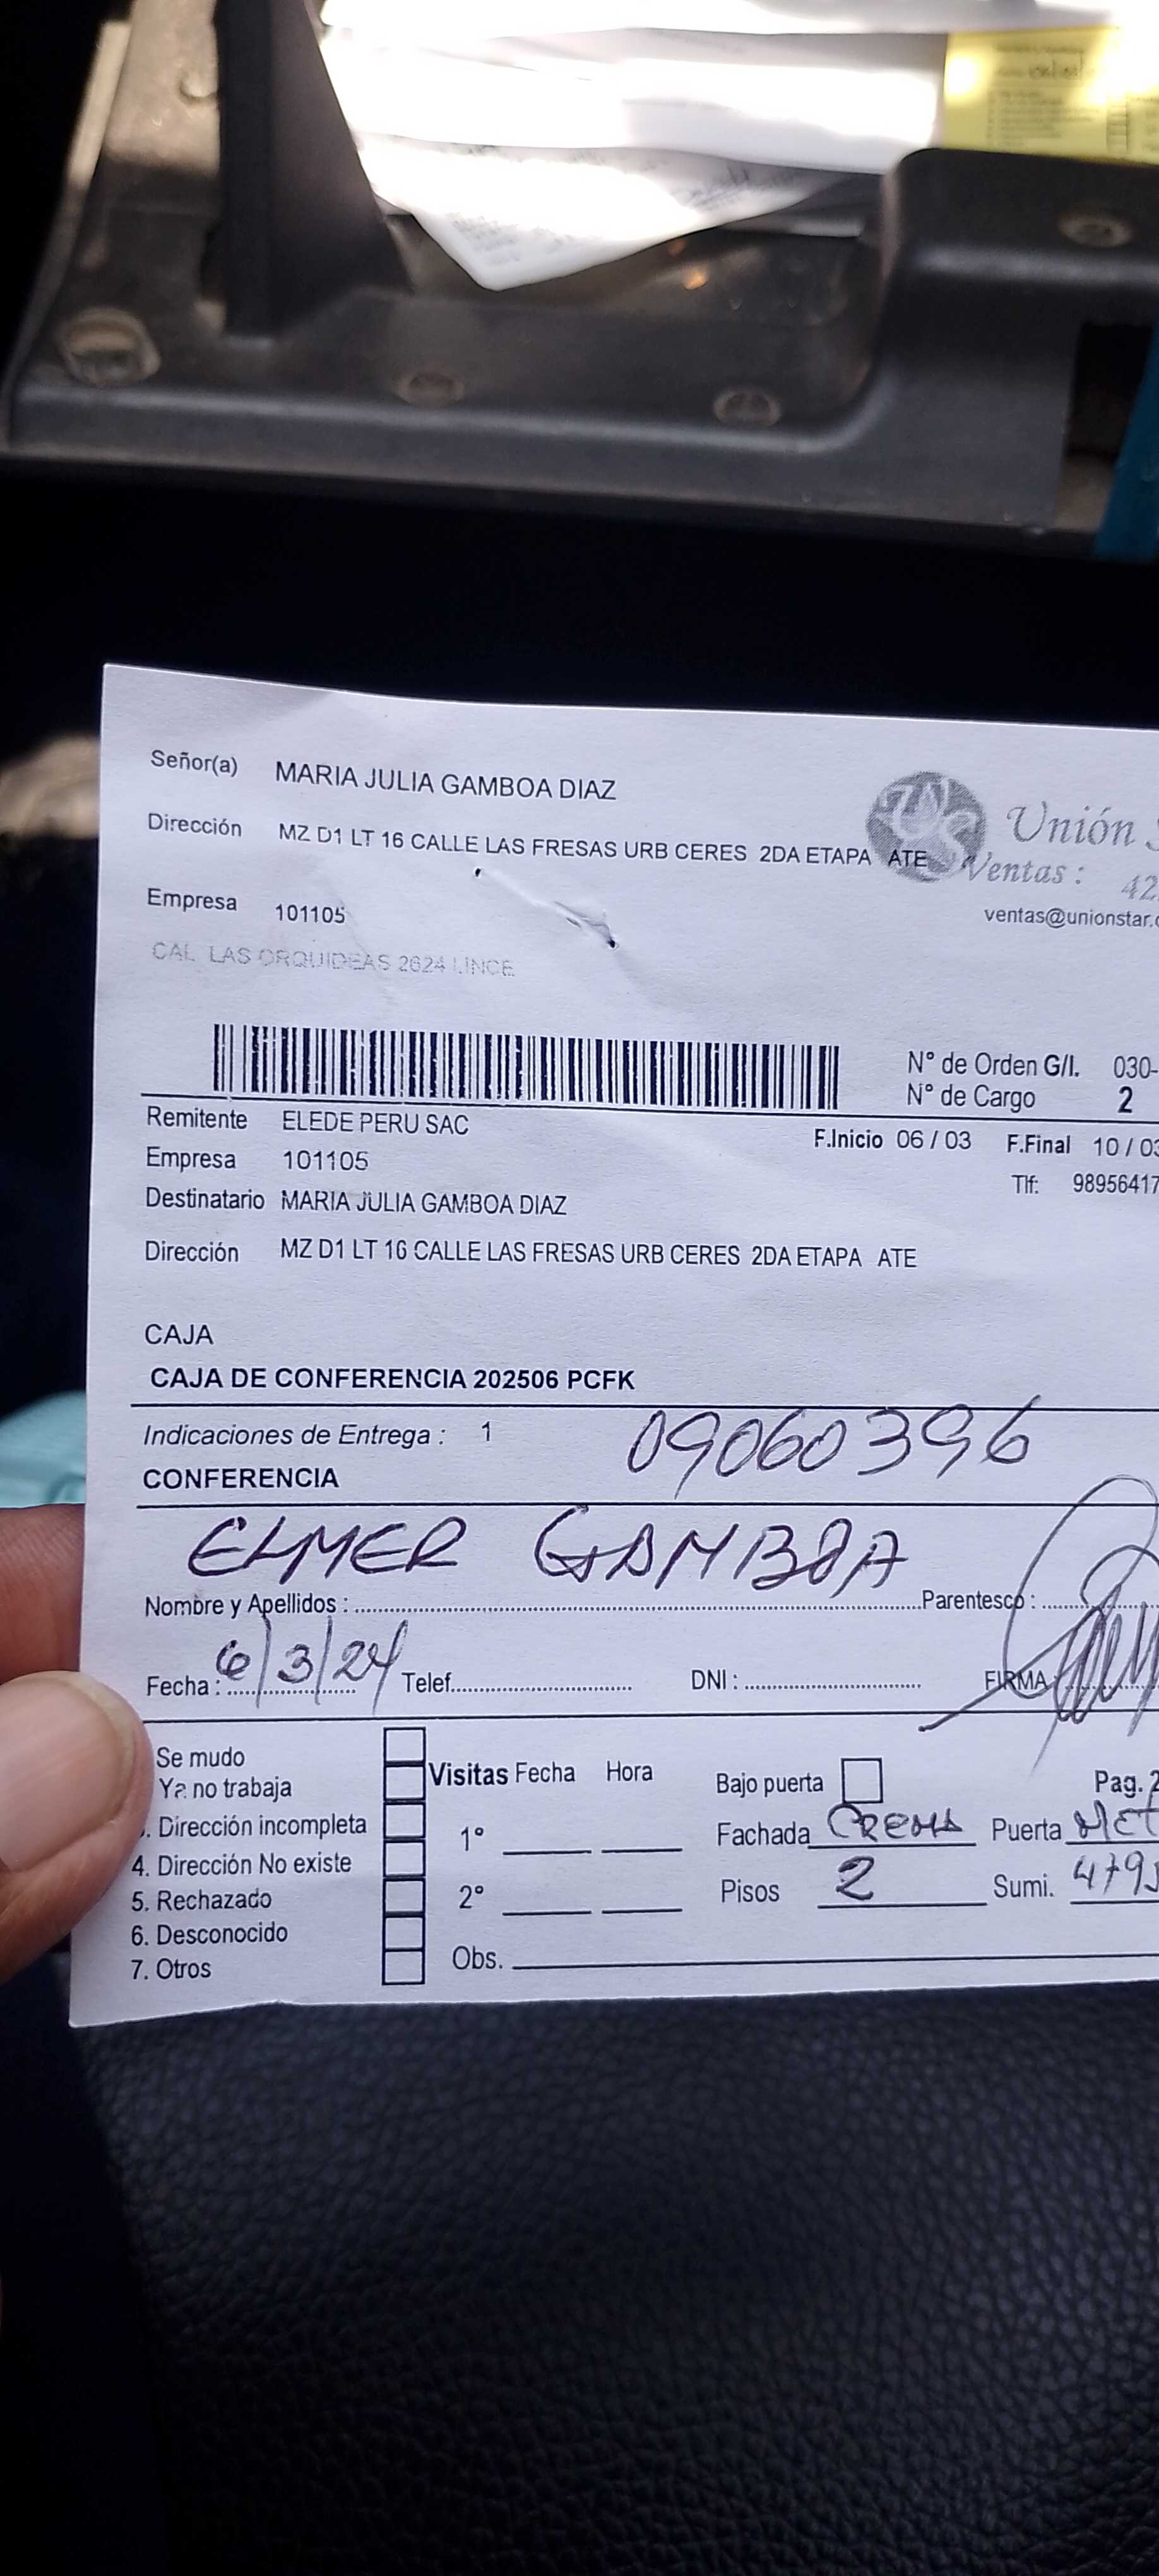 Señor(a) MARIA JULIA GAMBOA DIAZ
Dirección MZ D1 LT 16 CALLE LAS FRESAS URB CERES 2DA ETAPA ATE
Unión
Ventas: 42
Empresa 101105
ventas@unionstar.
CAL LAS ORQUIDEAS 2624 LINCE
N° de Orden G/I. 030-
N° de Cargo 2
Remitente ELEDE PERU SAC
F.Inicio 06 / 03 F.Final 10 / 03
Empresa 101105
Tlf: 98956417
Destinatario MARIA JULIA GAMBOA DIAZ
Dirección MZ D1 LT 16 CALLE LAS FRESAS URB CERES 2DA ETAPA ATE
CAJA
CAJA DE CONFERENCIA 202506 PCFK
Indicaciones de Entrega : 1 09060396
CONFERENCIA
ELMER GAMBOA
Nombre y Apellidos : Parentesco :
Fecha : 6/3/24 Telef. DNI : FIRMA
Se mudo
Ya no trabaja
. Dirección incompleta
4. Dirección No existe
5. Rechazado
6. Desconocido
7. Otros
Visitas Fecha Hora
1°
2°
Obs.
Bajo puerta Pag. 2
Fachada CREMA Puerta MET
Pisos 2 Sumi. 4795